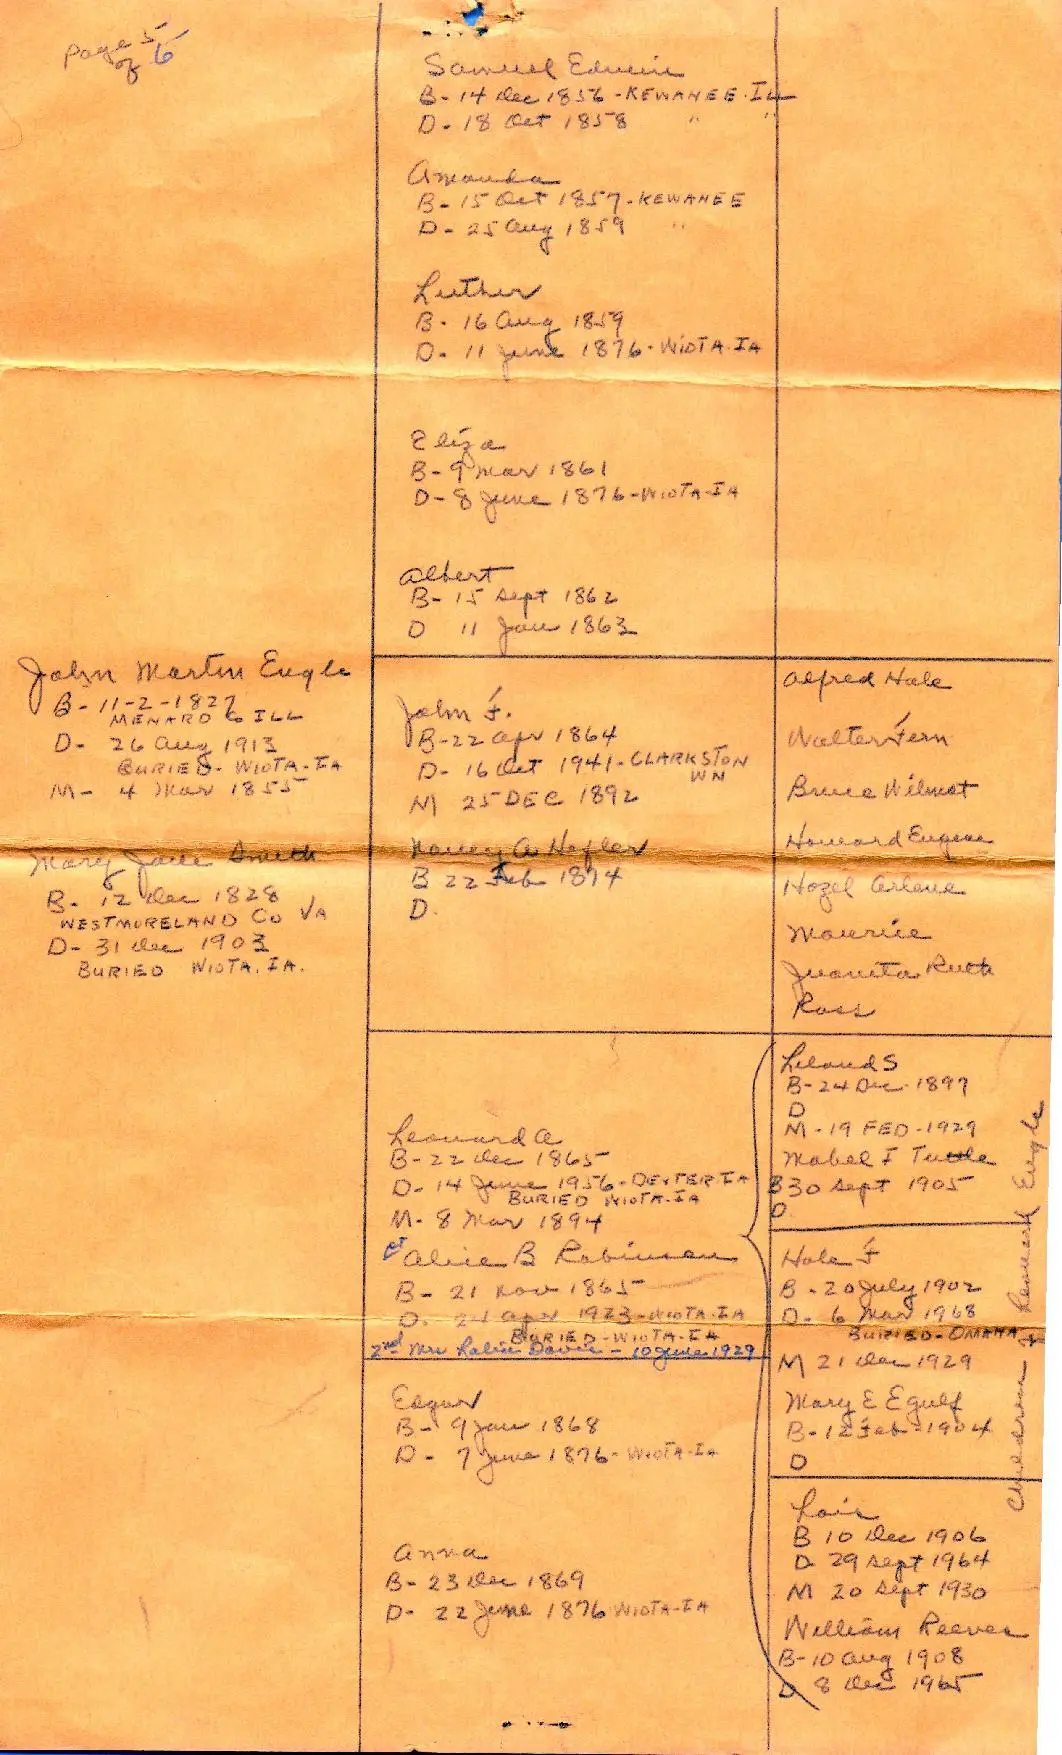 Page 5
of 6
Samuel Edwin
B- 14 Dec 1856 - KEWANEE ILL
D- 18 Oct 1858 " "
Amanda
B- 15 Oct 1857 - KEWANEE
D- 25 Aug 1859 "
Luther
B- 16 Aug 1859
D- 11 June 1876 - WIOTA IA
Eliza
B- 9 Mar 1861
D- 8 June 1876 - WIOTA-IA
Albert
B- 15 Sept 1862
D 11 Jan 1863
John Martin Eugle
B- 11-2-1827
MENARD Co ILL
D- 26 Aug 1913
BURIED- WIOTA-IA
M- 4 Mar 1855
Mary Jane Smith
B- 12 Dec 1828
WESTMORELAND Co VA
D- 31 Dec 1903
BURIED WIOTA. IA.
John F.
B-22 Apr 1864
D- 16 Oct 1941 - CLARKSTON
WN
M 25 DEC 1892
Nancy A Hefler
B 22 Feb 1874
D.
Alfred Hale
Walter Fern
Bruce Wilmot
Howard Eugene
Hazel Arlene
Maurice
Juanita Ruth
Ross
Leonard A
B-22 Dec 1865
D- 14 June 1956 - DEXTER IA
BURIED WIOTA-IA
M- 8 Mar 1894
Alice B Robinson
B- 21 Nov 1865
D. 24 Apr 1923 - WIOTA-IA
BURIED-WIOTA-IA
2nd Mrs Davis - 10 June 1929
Edgar
B- 9 Jan 1868
D- 7 June 1876 - WIOTA-IA
Anna
B- 23 Dec 1869
D- 22 June 1876 WIOTA-IA
Leland S
B-24 Dec-1897
D
M-19 FEB-1929
Mabel I Tuttle
B 30 Sept 1905
D.
Hale F
B- 20 July 1902
D- 6 Mar 1968
BURIED-OMAHA
M 21 Dec 1929
Mary E Egulf
B-12 Feb-1904
D
Lois
B 10 Dec 1906
D 29 Sept 1964
M 20 Sept 1930
William Reeves
B-10 Aug 1908
D 8 Dec 1965
Children of Leonard Eugle